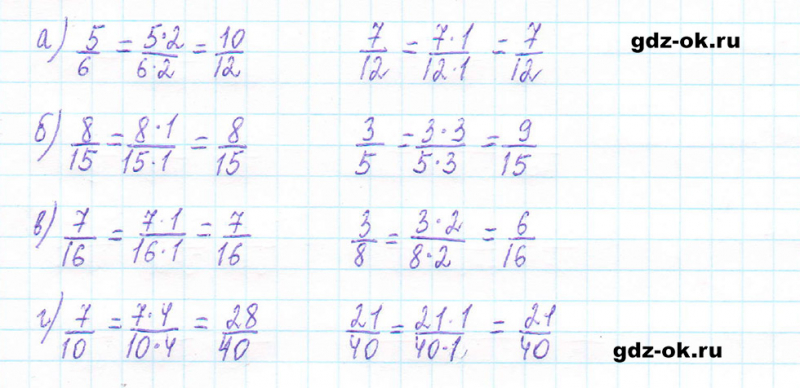 а) 5/6 = 5·2/6·2 = 10/12 7/12 = 7·1/12·1 = 7/12
gdz-ok.ru
б) 8/15 = 8·1/15·1 = 8/15 3/5 = 3·3/5·3 = 9/15
в) 7/16 = 7·1/16·1 = 7/16 3/8 = 3·2/8·2 = 6/16
г) 7/10 = 7·4/10·4 = 28/40 21/40 = 21·1/40·1 = 21/40
gdz-ok.ru